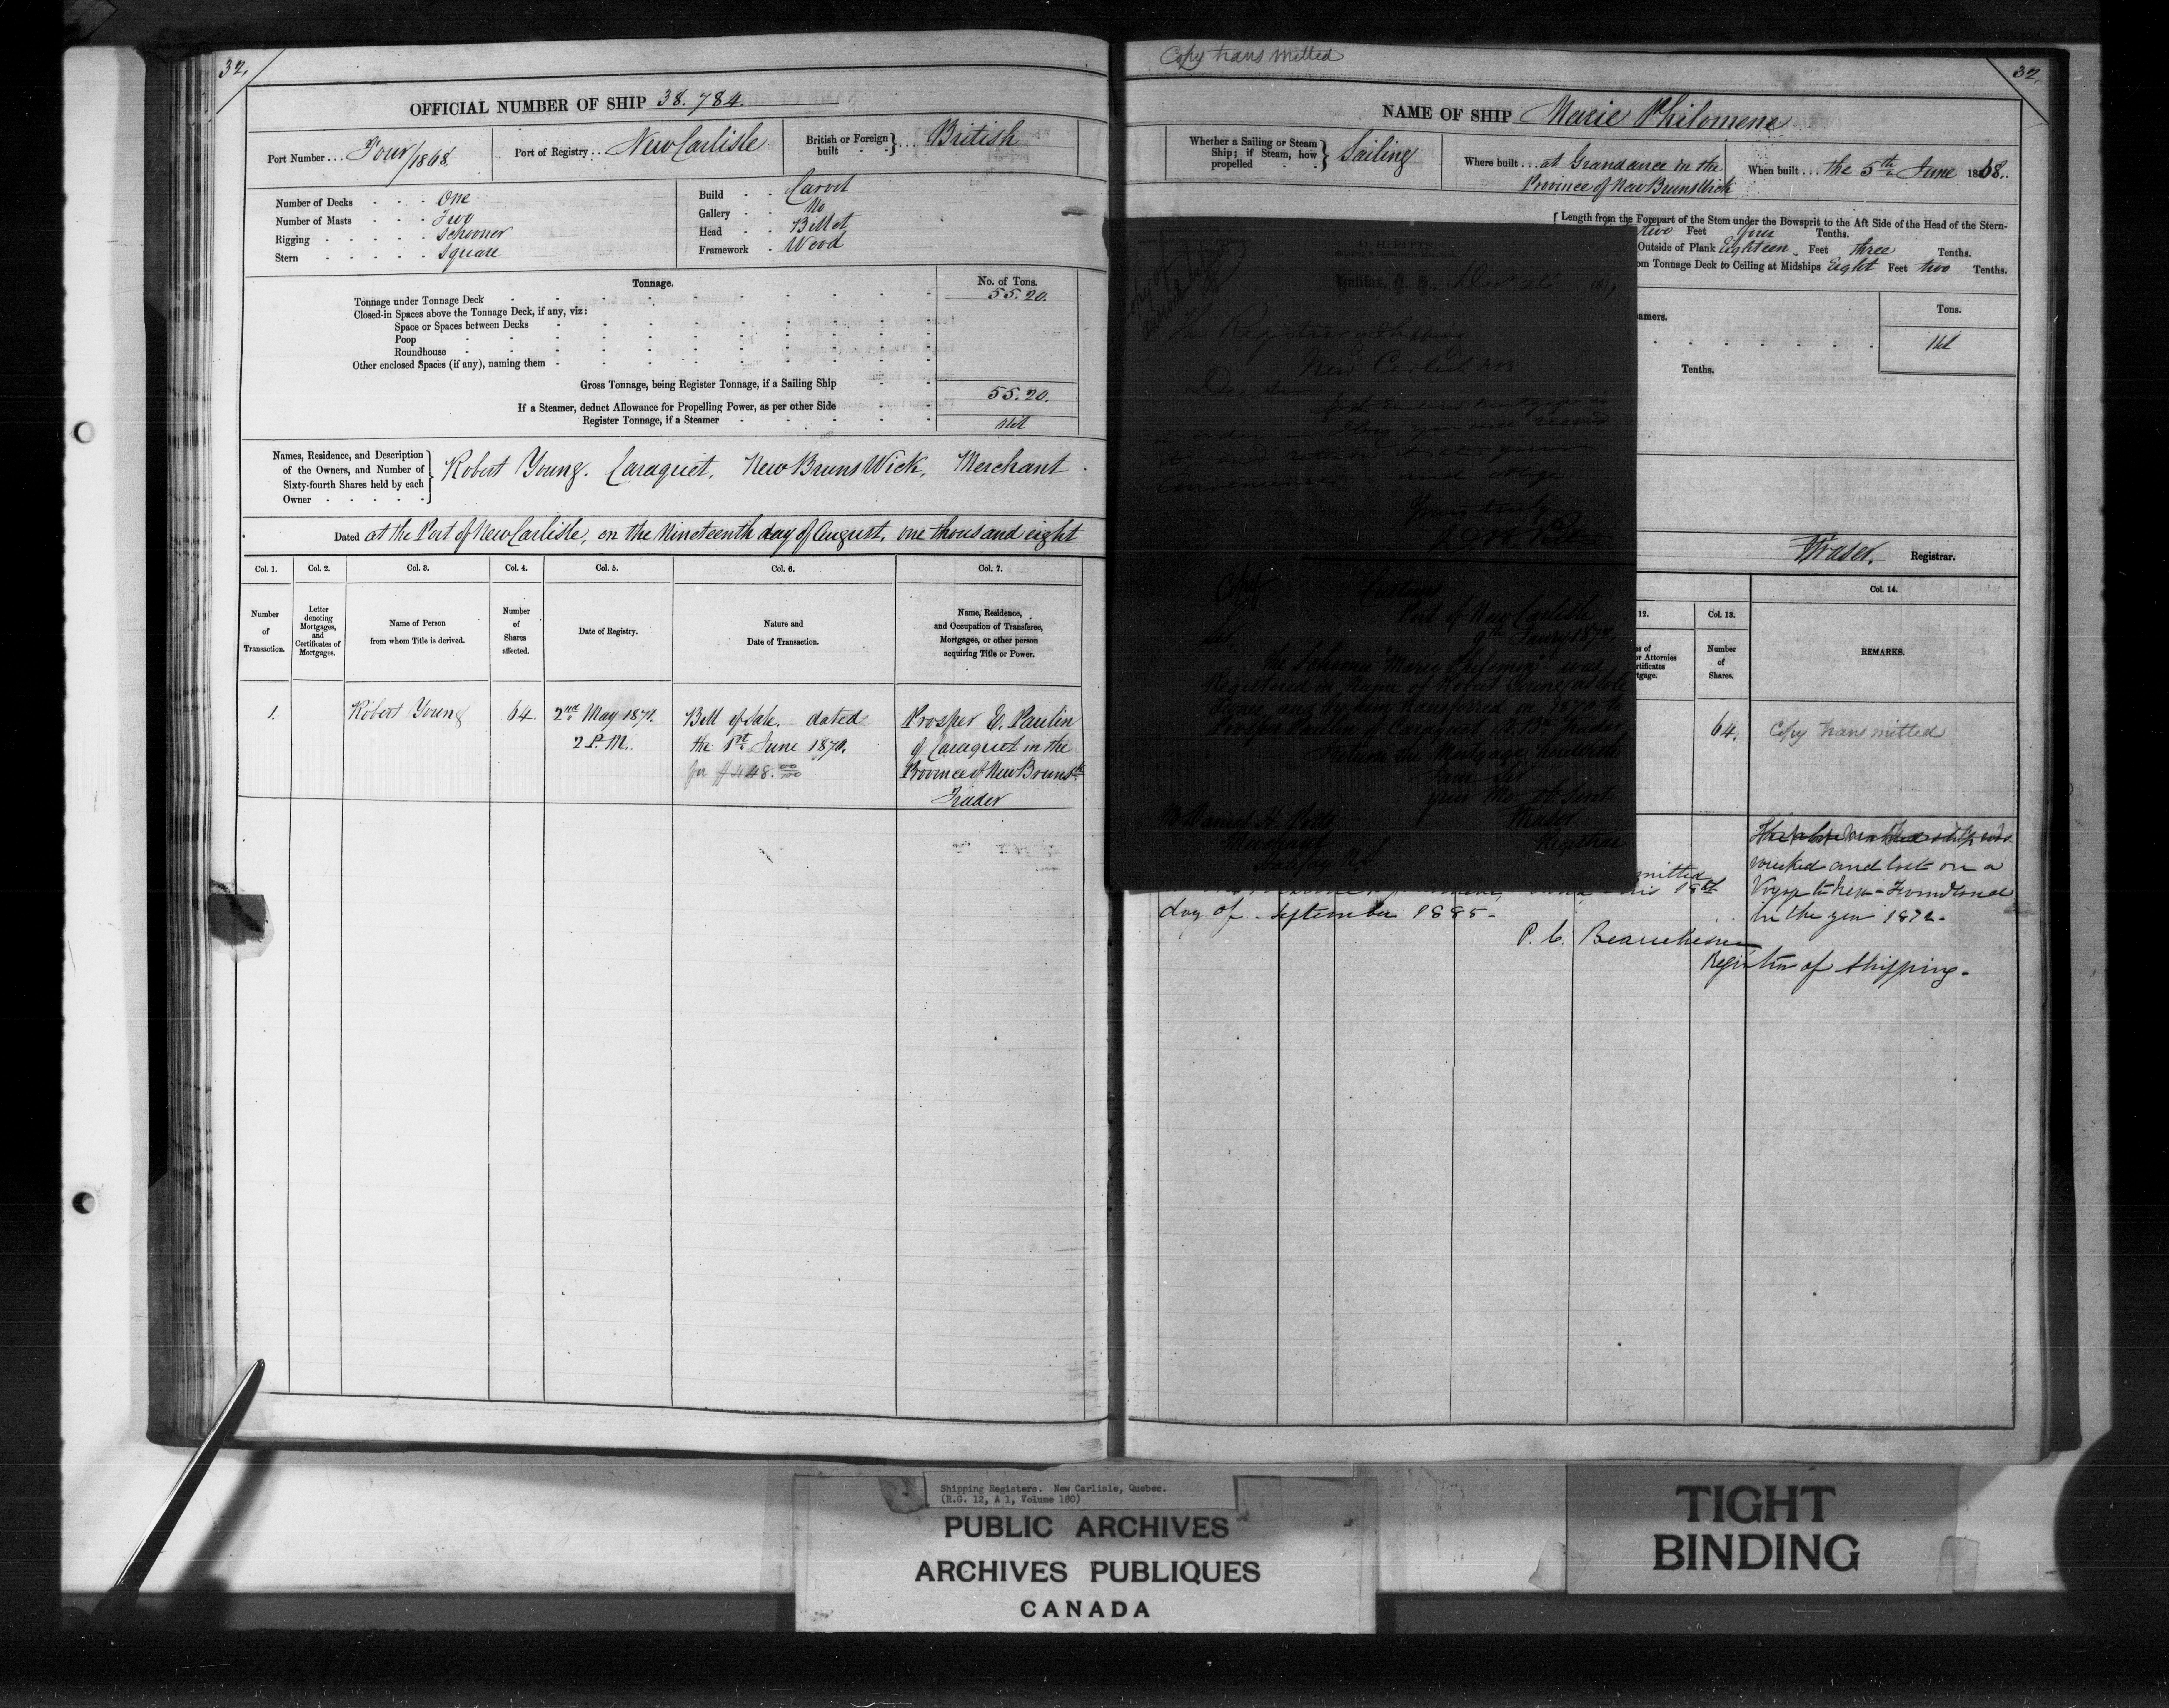 32.
OFFICIAL NUMBER OF SHIP 38.784
Port Number ... Four/1868
Port of Registry ... New Carlisle
British or Foreign built } ... British
Number of Decks One
Number of Masts Two
Rigging Schooner
Stern Square
Build Carvel
Gallery No
Head Billet
Framework Wood
Tonnage.
No. of Tons.
Tonnage under Tonnage Deck 55.20.
Closed-in Spaces above the Tonnage Deck, if any, viz:
Space or Spaces between Decks
Poop
Roundhouse
Other enclosed Spaces (if any), naming them
Gross Tonnage, being Register Tonnage, if a Sailing Ship 55.20.
If a Steamer, deduct Allowance for Propelling Power, as per other Side
Register Tonnage, if a Steamer Nil
Names, Residence, and Description
of the Owners, and Number of
Sixty-fourth Shares held by each
Owner
Robert Young. Caraquet, New BrunsWick, Merchant
Dated at the Port of New Carlisle, on the Nineteenth day of August, one thousand eight
Col. 1. Col. 2. Col. 3. Col. 4. Col. 5. Col. 6. Col. 7.
Number of Transaction.
Letter denoting Mortgages, and Certificates of Mortgages.
Name of Person from whom Title is derived.
Number of Shares affected.
Date of Registry.
Nature and Date of Transaction.
Name, Residence, and Occupation of Transferee, Mortgagee, or other person acquiring Title or Power.
1. Robert Young 64.
2nd May 1871.
2 P.M.
Bill of Sale. dated
the 1st June 1870.
for $448. 00/100
Prosper E. Paulin
of Caraquet in the
Province of New Brunsk
Trader
Copy transmitted
32.
NAME OF SHIP Marie Philomene
Whether a Sailing or Steam Ship; if Steam, how propelled } Sailing
Where built ... at Grandance in the
Province of New BrunsWick
When built ... the 5th June 1868.
Length from the Forepart of the Stem under the Bowsprit to the Aft Side of the Head of the Stern-
two Feet four Tenths.
Outside of Plank Eighteen Feet three Tenths.
om Tonnage Deck to Ceiling at Midships Eight Feet two Tenths.
eamers.
Tons.
Nil
Tenths.
Fraser, Registrar.
D. H. PITTS,
Halifax, N. S.,
The Registrar of Shipping
New Carlisle NB
Dear Sir
in order I beg you will record
it and return it at your
convenience and oblige
Yours truly
Copy
Customs
Port of New Carlisle
9th Janry 187
Sir
the Schooner "Marie Philomene" was
Registered in Name of Robert Young as sole
owner and by him transferred in 1870 to
Prosper Paulin of Caraquet N.B. Trader
Return the Mortgage herewith
I am Sir
your Mo. ob Servt
Fraser
Registrar
Mr Daniel H. Pitts
Merchant
Halifax N.S.
12. Col. 13. Col. 14.
s of
or Attornies
rtificates
tgage.
Number of Shares.
REMARKS.
64. Copy transmitted
wrecked and lost on a
Voyage to New-Foundland
in the year 1872.
mitted
this 18th
day of September 1885-
P. C. Beauchesne
Registrar of Shipping.
Shipping Registers. New Carlisle, Quebec.
(R.G. 12, A 1, Volume 180)
PUBLIC ARCHIVES
ARCHIVES PUBLIQUES
CANADA
TIGHT
BINDING